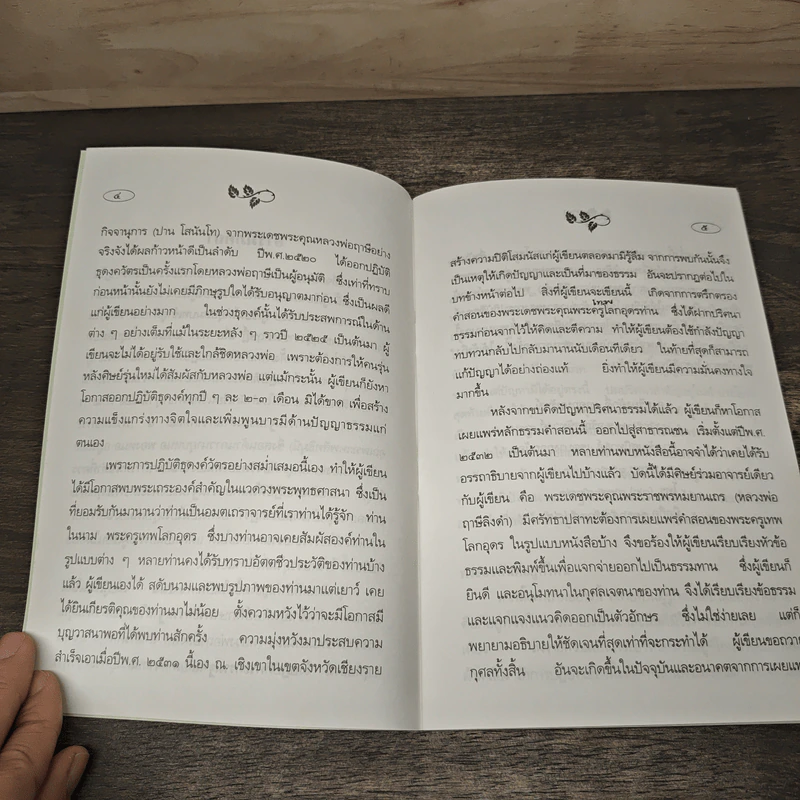 ๔
กิจจานุการ (ปาน โสนันโท) จากพระเดชพระคุณหลวงพ่อฤาษีอย่าง
จริงจังได้ผลก้าวหน้าดีเป็นลำดับ ปีพ.ศ.๒๕๒๐ ได้ออกปฏิบัติ
ธุดงควัตรเป็นครั้งแรกโดยหลวงพ่อฤาษีเป็นผู้อนุมัติ ซึ่งเท่าที่ทราบ
ก่อนหน้านั้นยังไม่เคยมีภิกษุรูปใดได้รับอนุญาตมาก่อน ซึ่งเป็นผลดี
แก่ผู้เขียนอย่างมาก ในช่วงธุดงค์นั้นได้รับประสพการณ์ในด้าน
ต่าง ๆ อย่างเต็มที่แม้ในระยะหลัง ๆ ราวปี ๒๕๒๕ เป็นต้นมา ผู้
เขียนจะไม่ได้อยู่รับใช้และใกล้ชิดหลวงพ่อ เพราะต้องการให้คนรุ่น
หลังศิษย์รุ่นใหม่ได้สัมผัสกับหลวงพ่อ แต่แม้กระนั้น ผู้เขียนก็ยังหา
โอกาสออกปฏิบัติธุดงค์ทุกปี ๆ ละ ๒-๓ เดือน มิได้ขาด เพื่อสร้าง
ความแข็งแกร่งทางจิตใจและเพิ่มพูนบารมีด้านปัญญาธรรมแก่
ตนเอง
เพราะการปฏิบัติธุดงค์วัตรอย่างสม่ำเสมอนี้เอง ทำให้ผู้เขียน
ได้มีโอกาสพบพระเถระองค์สำคัญในแวดวงพระพุทธศาสนา ซึ่งเป็น
ที่ยอมรับกันมานานว่าท่านเป็นอมตเถราจารย์ที่เราท่านได้รู้จัก ท่าน
ในนาม พระครูเทพโลกอุดร ซึ่งบางท่านอาจเคยสัมผัสองค์ท่านใน
รูปแบบต่าง ๆ หลายท่านคงได้รับทราบอัตตชีวประวัติของท่านบ้าง
แล้ว ผู้เขียนเองได้ สดับนามและพบรูปภาพของท่านมาแต่เยาว์ เคย
ได้ยินเกียรติคุณของท่านมาไม่น้อย ตั้งความหวังไว้ว่าจะมีโอกาสมี
บุญวาสนาพอที่ได้พบท่านสักครั้ง ความมุ่งหวังมาประสบความ
สำเร็จเอาเมื่อปีพ.ศ. ๒๕๓๑ นี้เอง ณ. เชิงเขาในเขตจังหวัดเชียงราย
๕
สร้างความปิติโสมนัสแก่ผู้เขียนตลอดมามิรู้ลืม จากการพบกันนั้นจึง
เป็นเหตุให้เกิดปัญญาและเป็นที่มาของธรรม อันจะปรากฏต่อไปใน
บทข้างหน้าต่อไป สิ่งที่ผู้เขียนจะเขียนนี้ เกิดจากการตรึกตรอง
เทพ
คำสอนของพระเดชพระคุณพระครูโลกอุดรท่าน ซึ่งได้ฝากปริศนา
ธรรมก่อนจากไว้ให้คิดและตีความ ทำให้ผู้เขียนต้องใช้กำลังปัญญา
ทบทวนกลับไปกลับมานานนับเดือนทีเดียว ในท้ายที่สุดก็สามารถ
แก้ปัญญาได้อย่างถ่องแท้ ยิ่งทำให้ผู้เขียนมีความมั่นคงทางใจ
มากขึ้น
หลังจากขบคิดปัญหาปริศนาธรรมได้แล้ว ผู้เขียนก็หาโอกาส
เผยแพร่หลักธรรมคำสอนนี้ ออกไปสู่สาธารณชน เริ่มตั้งแต่ปีพ.ศ.
๒๕๓๒ เป็นต้นมา หลายท่านพบหนังสือนี้อาจจำได้ว่าเคยได้รับ
อรรถาธิบายจากผู้เขียนไปบ้างแล้ว บัดนี้ได้มีศิษย์ร่วมอาจารย์เดียว
กับผู้เขียน คือ พระเดชพระคุณพระราชพรหมยานเถร (หลวงพ่อ
ฤาษีลิงดำ) มีศรัทธาปสาทะต้องการเผยแพร่คำสอนของพระครูเทพ
โลกอุดร ในรูปแบบหนังสือบ้าง จึงขอร้องให้ผู้เขียนเรียบเรียงหัวข้อ
ธรรมและพิมพ์ขึ้นเพื่อแจกจ่ายออกไปเป็นธรรมทาน ซึ่งผู้เขียนก็
ยินดี และอนุโมทนาในกุศลเจตนาของท่าน จึงได้เรียบเรียงข้อธรรม
และแจกแจงแนวคิดออกเป็นตัวอักษร ซึ่งไม่ใช่ง่ายเลย แต่ก็
พยายามอธิบายให้ชัดเจนที่สุดเท่าที่จะกระทำได้ ผู้เขียนขอถวาย
กุศลทั้งสิ้น อันจะเกิดขึ้นในปัจจุบันและอนาคตจากการเผยแพ